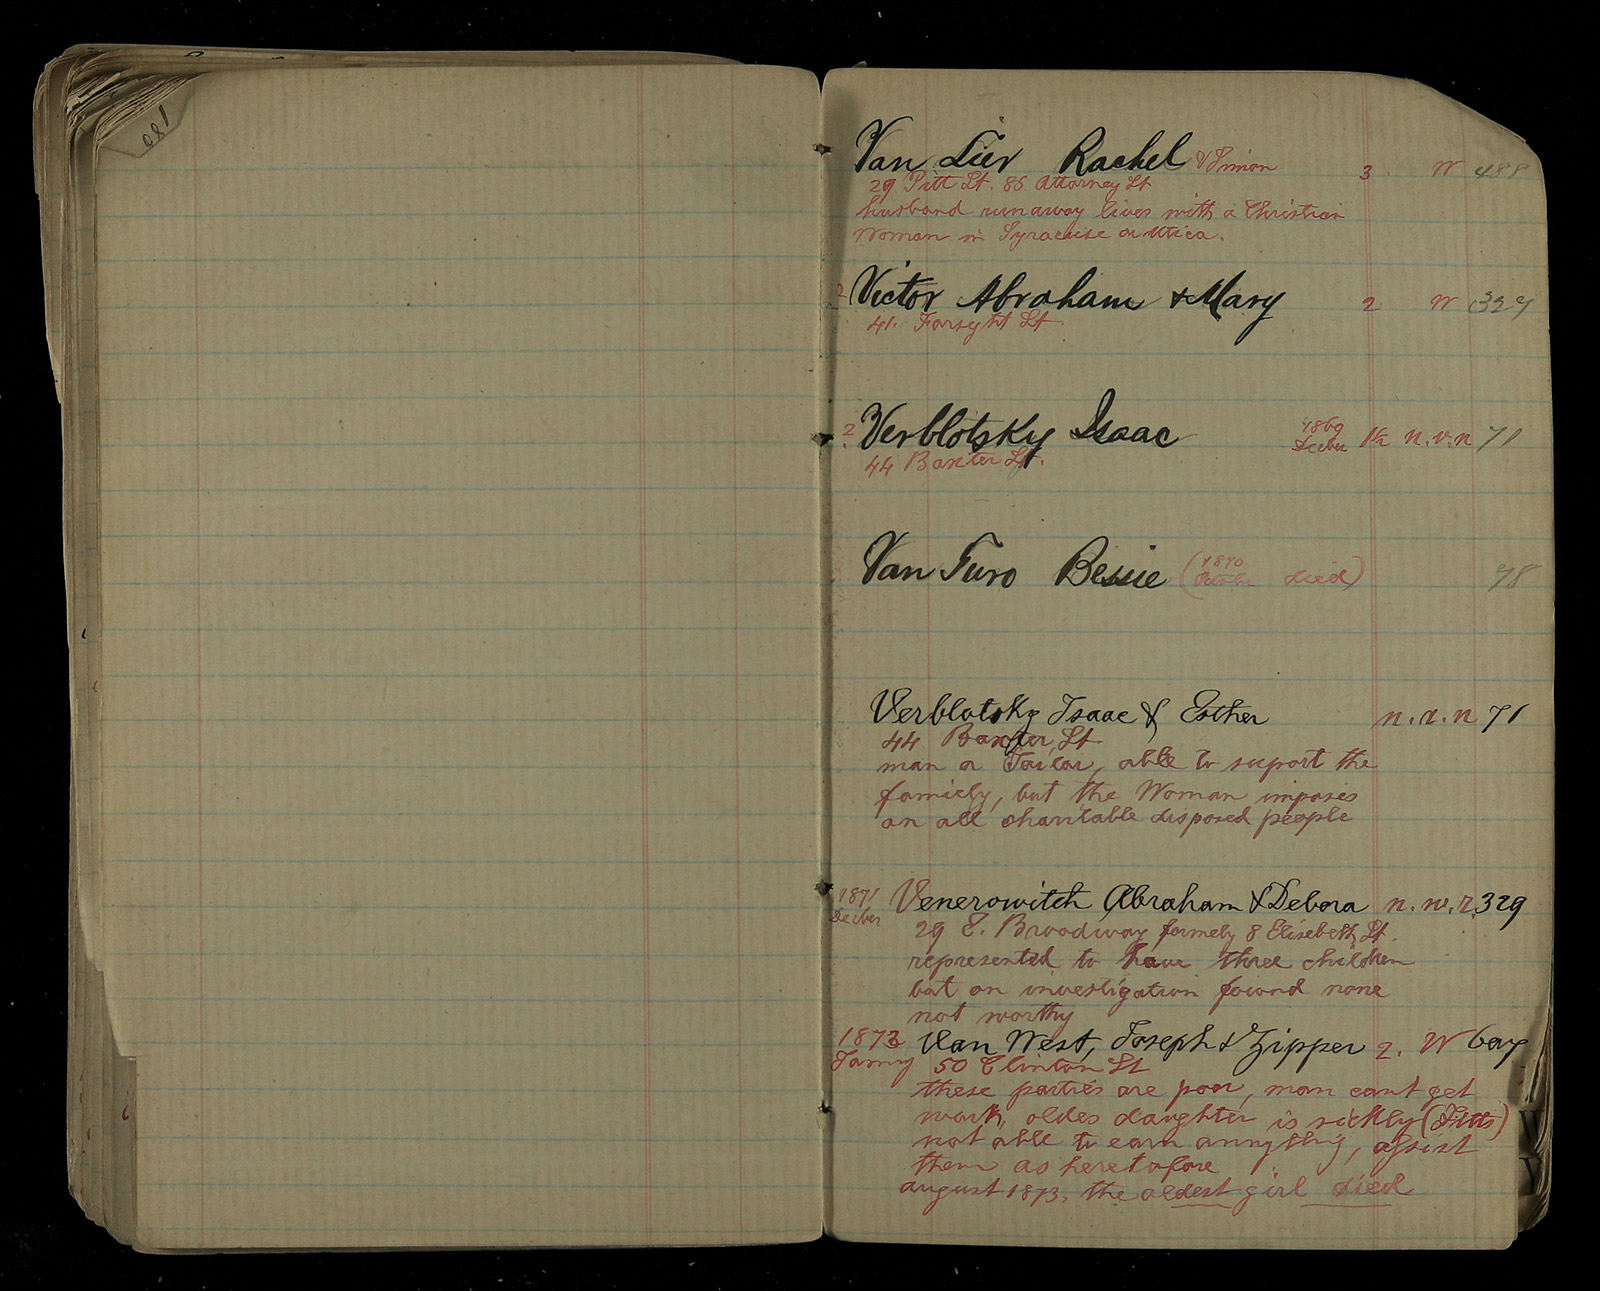 180
Van Lier Rachel & Simon 3 W 488
29 Pitt St. 85 Attorney St
husband runaway lives with a Christian
Woman in Syracuse or Utica.
2 Victor Abraham & Mary 2 W 327
41. Forsyht St
2 Verblotsky Isaac 1869 Decbr n.v.n 71
44 Baxter St.
Van Turo Bessie (1870 died) 78
Verblotsky Isaac & Esther 71
44 Baxter St
man a Tailor, able to suport the
family, but the Woman imposes
on all charitable disposed people
1871 Decber Venerowitch Abraham & Debora n.w.r. 329
29 E. Broadway formely 8 Elisebeth St.
represented to have three children
but on investigation found none
not worthy
1873 Jamry Van West, Joseph & Zipper 2. W
50 Clinton St
these parties are poor, man cant get
work, oldes daughter is sickly (Fitts)
not able to earn annything, assist
them as heretofore
august 1873, the oldest girl died